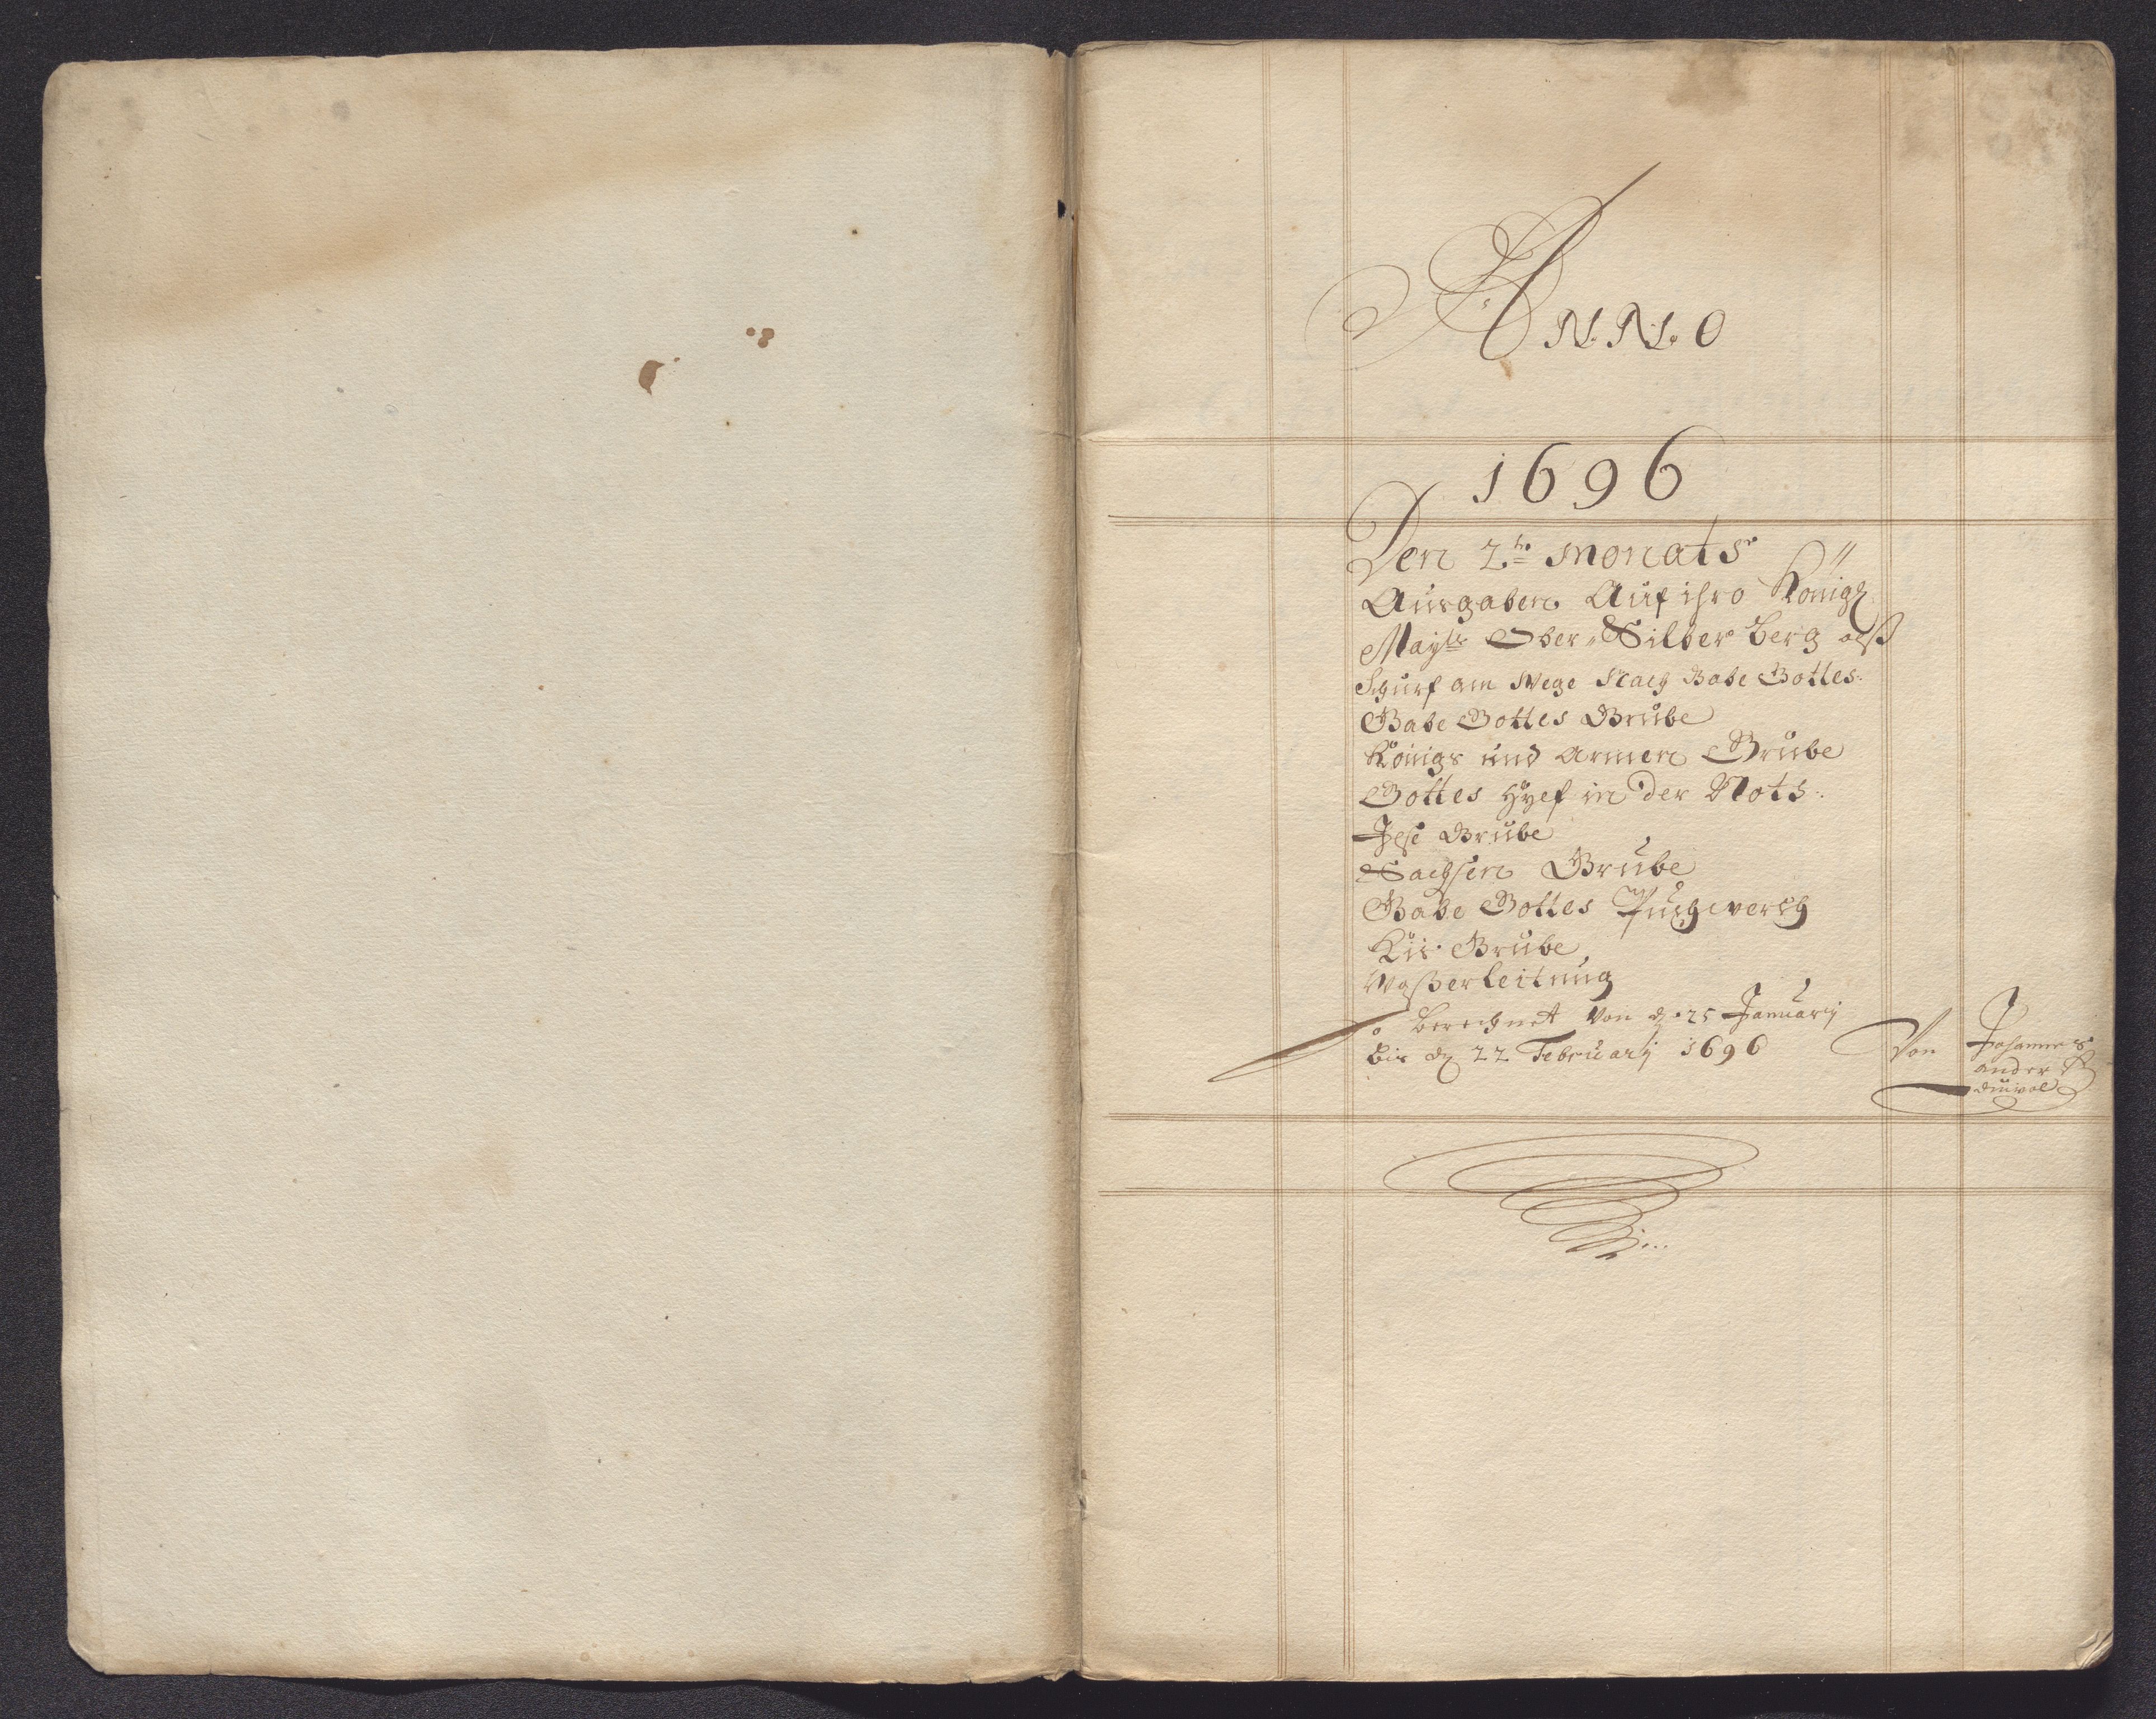 ANNO
1696
Den 2te Monats
Ausgaben Auf ihro Königl
Mayts Ober Silber berg alß
Schurf am Wege Nach Gabe Gottes
Gabe Gottes Grube
Königs und Armen Grube
Gottes Hyelf in der Noth
Grube
Sachsen Grube
Gabe Gottes Puchwerch
Kis Grube
Waßerleitung
berechnet Von d 25 January
bis d 22 February 1696 Von Johannes
Anders